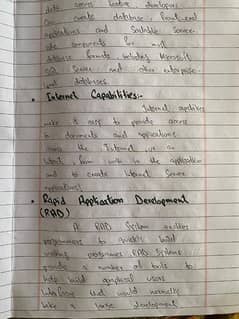 data access feature developers
can create database, front-end
applications and Scalable Server-
side components for most
database formats including Microsoft
SQL Server and other enterprise-
level databases.
• Internet Capabilities:-
Internet capabilities
make it easy to provide access
to documents and applications
across the Internet or
Intranet, from within the application
and to create Internet Server
applications!
• Rapid Application Development
(RAD)
A RAD System enables
programmers to quickly build
working programs. RAD Systems
provide a number of tools to
help build graphical users
interfaces that would normally
take a large development